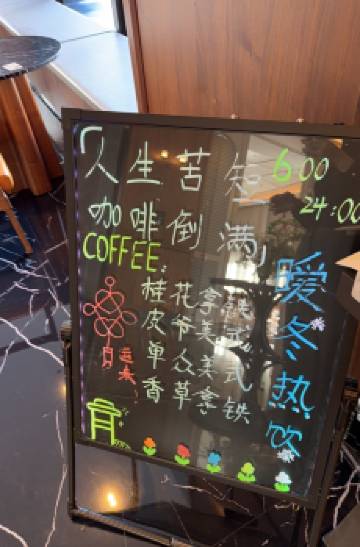 「人生苦短
咖啡倒满」
6:00
24:00
COFFEE:
桂花拿铁
皮爷美式
单众美式
香草拿铁
暖冬热饮
运来